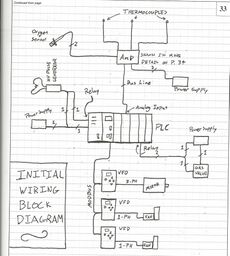 Continued from page
33
THERMOCOUPLES
Oxygen
Sensor
2
AMP
SHOWN IN MORE
DETAIL ON P. 34
2
Power Supply
Bus Line
Relay
Analog Input
Power Supply
PLC
Power Supply
Relay
GAS
VALVE
INITIAL
WIRING
BLOCK
DIAGRAM
MODBUS
VFD
3-PH
MOTOR
VFD
3-PH
FAN
VFD
3-PH
FAN